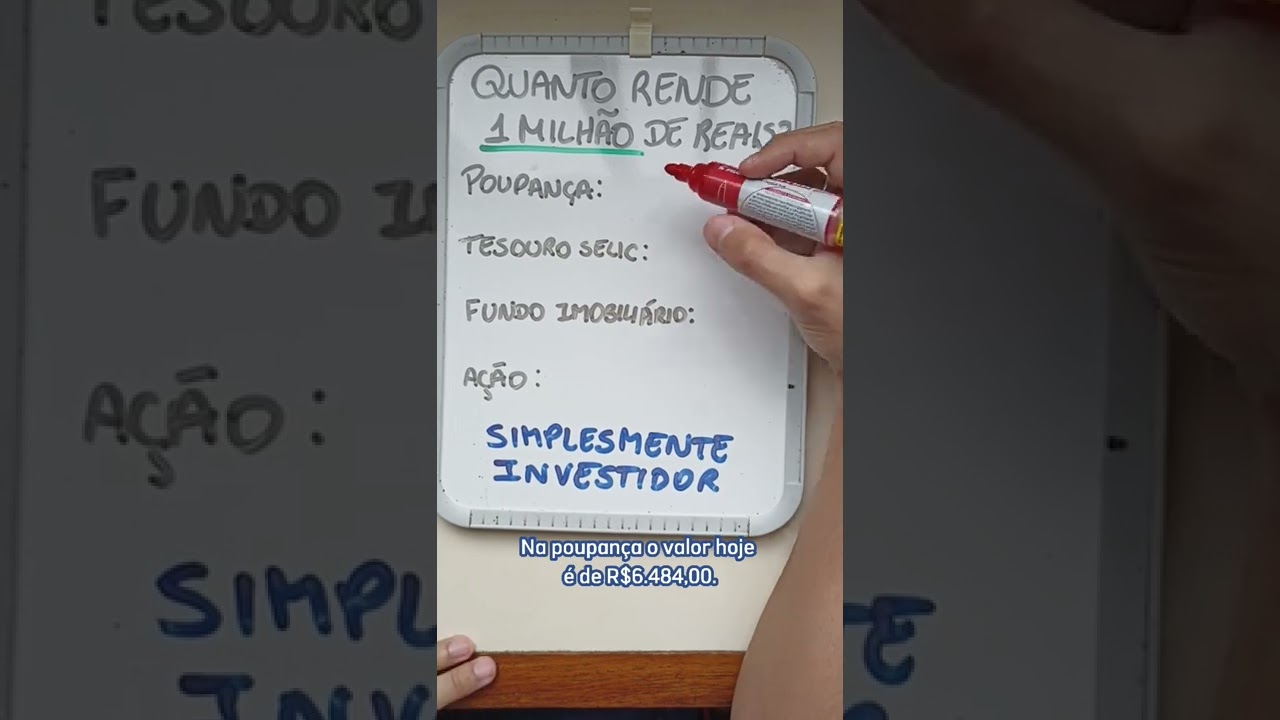 QUANTO RENDE
1 MILHÃO DE REAIS?
POUPANÇA:
TESOURO SELIC:
FUNDO IMOBILIÁRIO:
AÇÃO:
SIMPLESMENTE
INVESTIDOR
Na poupança o valor hoje
é de R$6.484,00.
TESOURO
FUNDO IM
AÇÃO:
SIMPL
INV